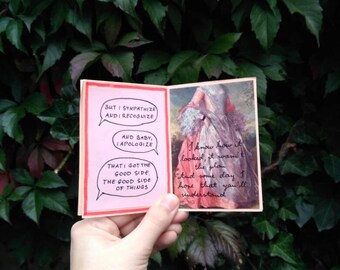 BUT I SYMPATHIZE
AND I RECOGNIZE
AND BABY,
I APOLOGIZE
THAT I GOT THE
GOOD SIDE,
THE GOOD SIDE
OF THINGS
I know how it
looked, it wasn't
the plan
And some day I
hope that you'll
understand